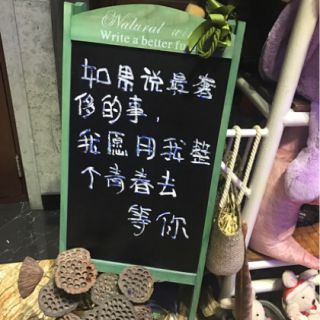 Natural
Write a better fu
如果说最奢
侈的事，
我愿用我整
个青春去
等你